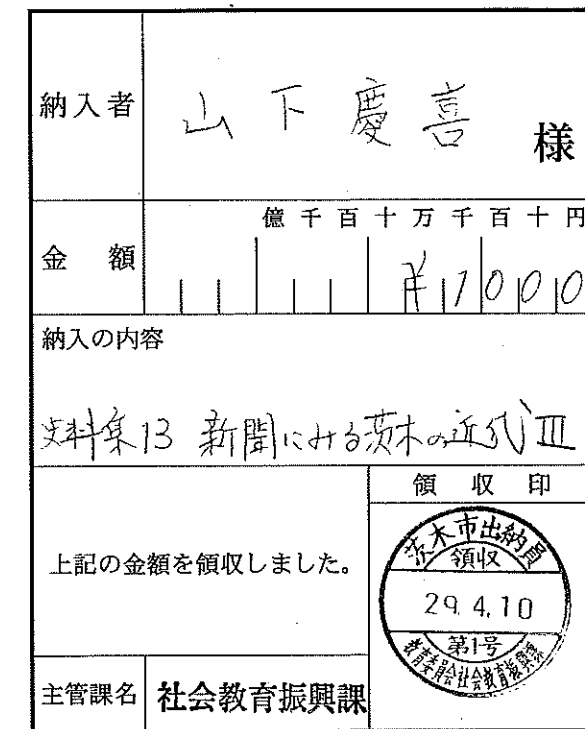 納入者 山下慶喜 様
億千百十万千百十円
金額 ¥1000
納入の内容
史料集13 新聞にみる茨木の近代Ⅲ
領収印
上記の金額を領収しました。
茨木市出納員
領収
29.4.10
第1号
教育委員会社会教育振興課
主管課名 社会教育振興課